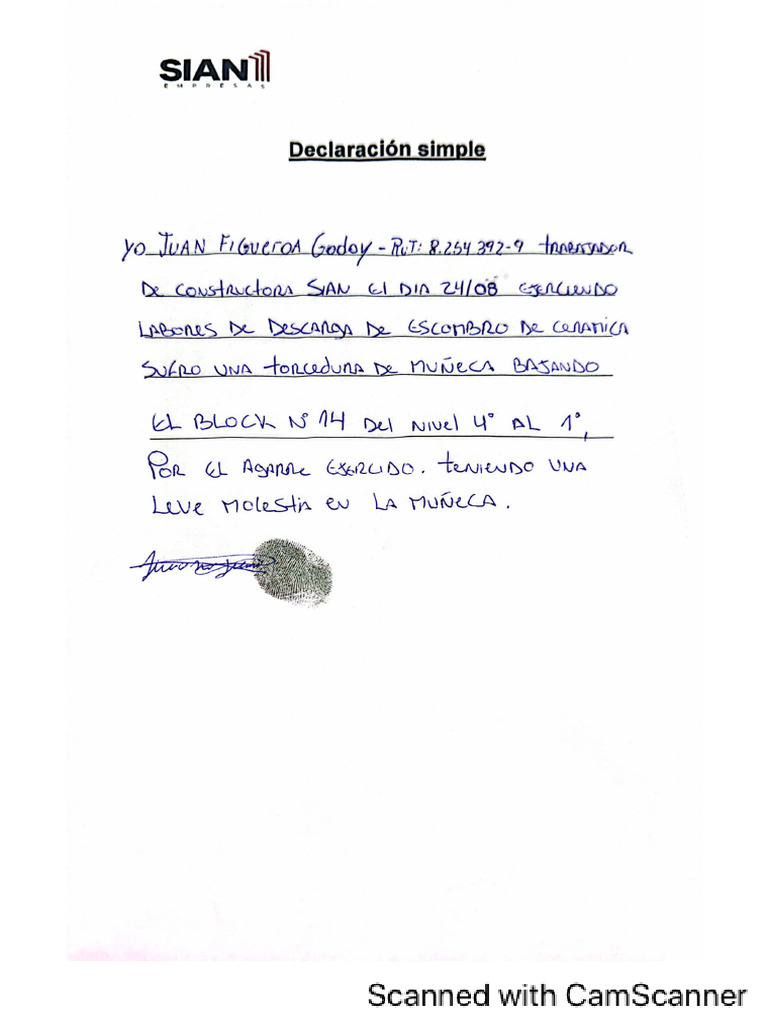 SIAN
EMPRESAS
Declaración simple
Yo JUAN FIGUEROA Godoy - RUT: 8.254.392-9 TRABAJADOR
DE CONSTRUCTORA SIAN El DIA 24/08 EJERCIENDO
LABORES DE DESCARGA DE ESCOMBRO DE CERAMICA
SUFRO UNA TORCEDURA DE MUÑECA BAJANDO
EL BLOCK N° 14 Del NIVEL 4° AL 1°,
POR EL AGARRE EJERCIDO. TENIENDO UNA
LEVE MOLESTIA EN LA MUÑECA.
Scanned with CamScanner